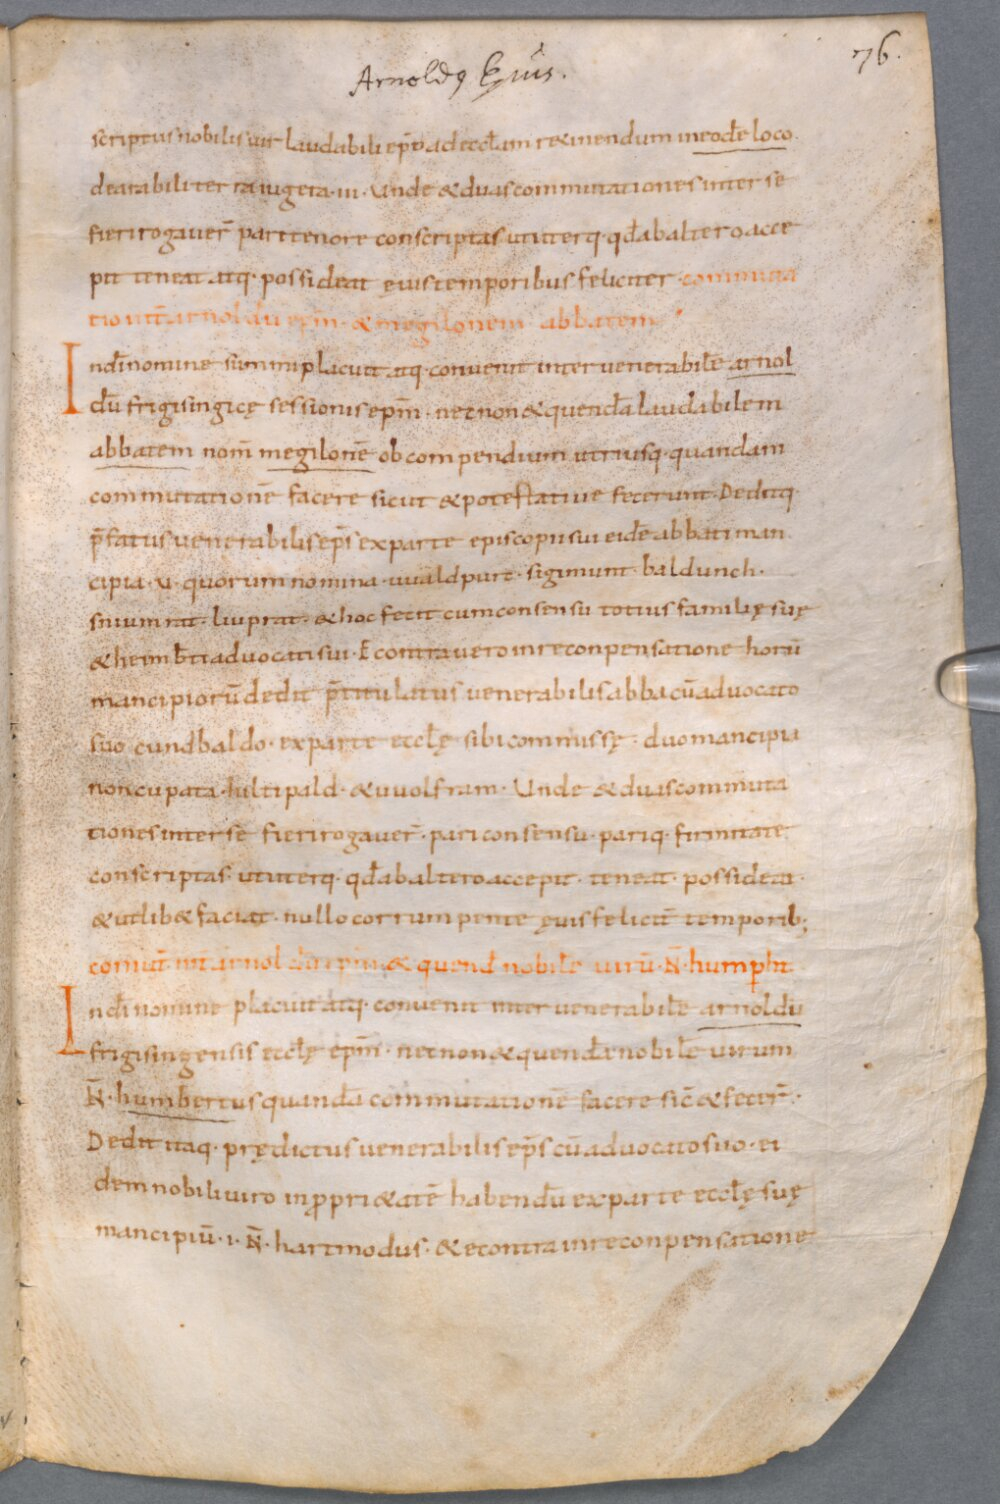 Arnoldꝯ Epûs.
76.
scriptus nobilis uir laudabili ep̄o ad eccl̄am retinendum in eodē loco.
de arabili terra iugera · III · Unde & duas commutationes inter se
fieri rogauer̄ pari tenore conscriptas ut uterq · qd̄ ab altero acce
pit teneat atq · possideat ęuis temporibus feliciter · commuta
tio int̄ arnoldū ep̄m · & megilonem abbatem
In dī nomine summi placuit atq · conuenit inter uenerabilē arnol
dū frigisingicę sessionis ep̄m · necnon & quendā laudabilem
abbatem nom̄ megilonē ob compendium utriusq · quandam
commutationē facere sicut & potestatiue fecerunt · Dedit itaq ·
p̄fatus uenerabilis ep̄s ex parte episcopii sui eidē abbati man
cipia · V · quorum nomina · uualdpurc · sigimunt · baldunch ·
sniumrat · liuprat · & hoc fecit cum consensu totius familię suę
& heimb̄ti aduocati sui · E contra uero in reconpensatione horū
mancipiorū dedit p̄titulatus uenerabilis abba cū aduocato
suo cundbaldo · ex parte eccl̄ę sibi commissę · duo mancipia
noncupata · hiltipald · & uuolfram · Unde & duas commuta
tiones inter se fieri rogauer̄ · pari consensu · pariq · firmitate
conscriptas · ut uterq · qd̄ ab altero accepit · teneat · possideat ·
& ut lib& faciat · nullo corrumpente ęuis felicit̄ temporib;
com̄ut̄ int̄ arnoldū ep̄m & quend̄ nobilē uirū · N̄ · humpht
In dī nomine placuit atq · conuenit inter uenerabilē arnoldū
frigisingensis eccl̄ę ep̄m · necnon & quendā nobilē uirum
N̄ · humbertus quandā commutationē facere sic̄ & fecer̄ ·
Dedit itaq · prędictus uenerabilis ep̄s cū aduocato suo · ei
dem nobili uiro in ꝓpri&atē habendū ex parte eccl̄ę suę
mancipiū · I · N̄ · hartmodus · & econtra in reconpensatione